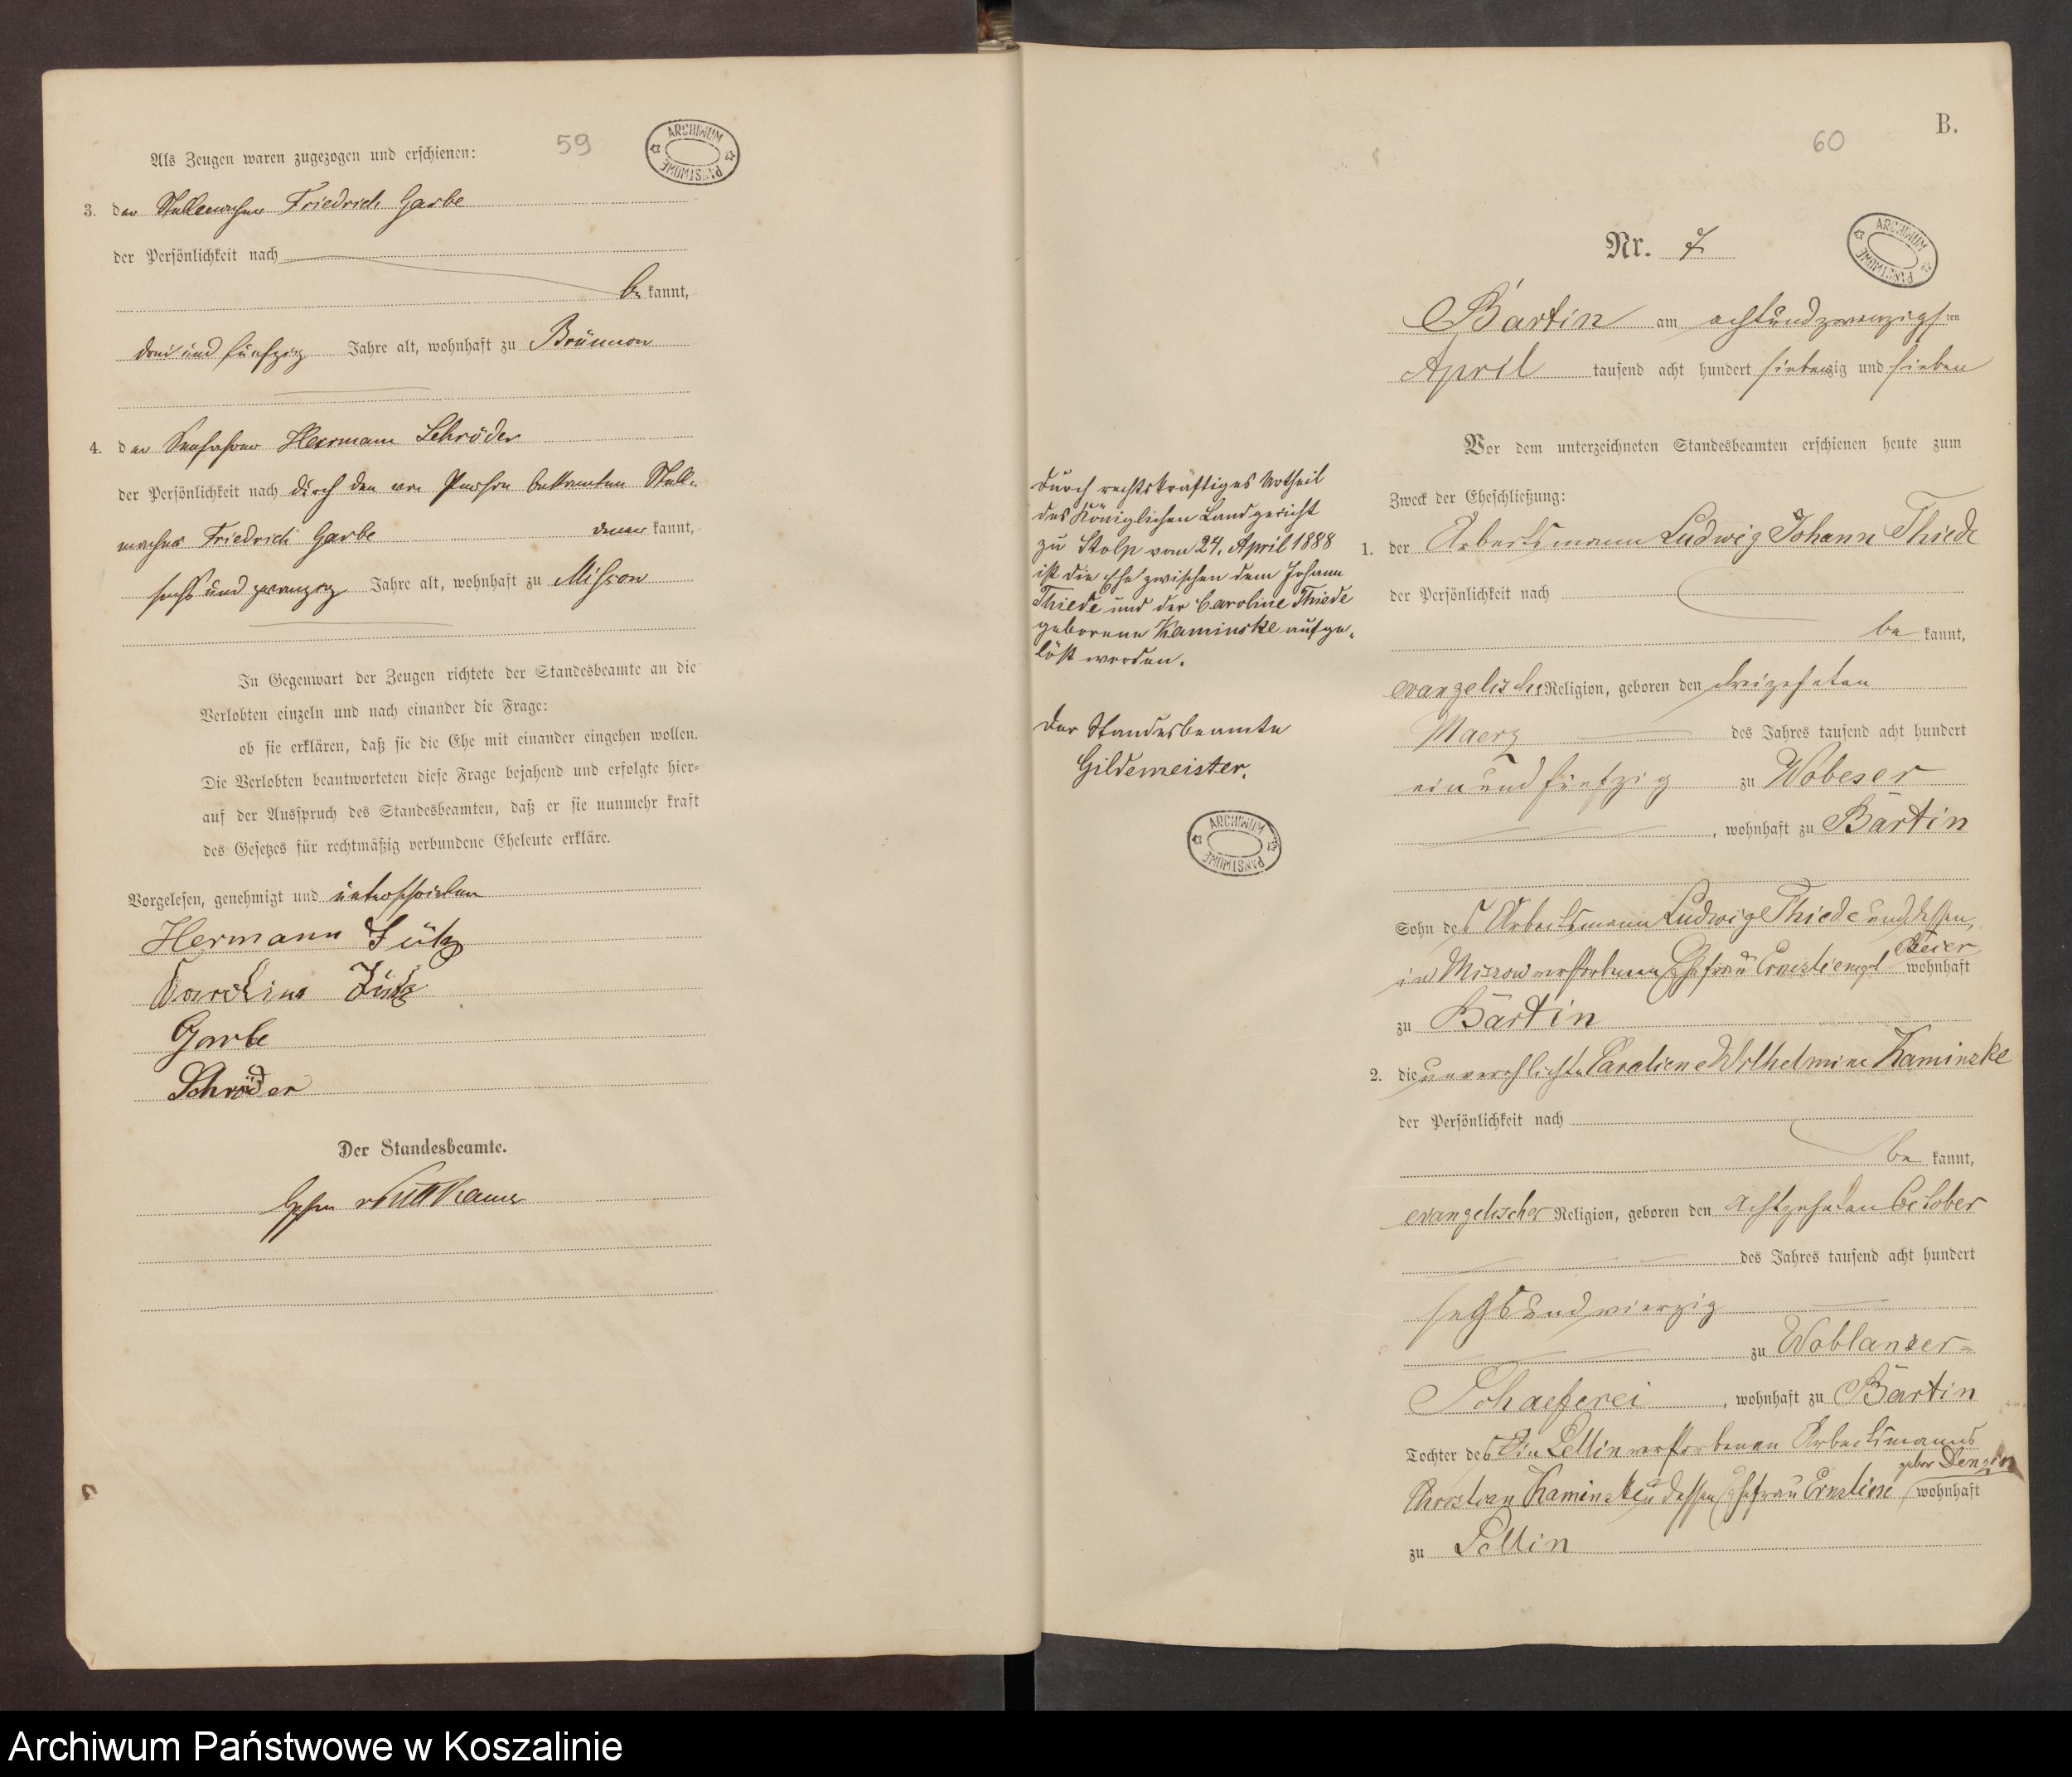 59
ARCHIWUM PAŃSTWOWE
Als Zeugen waren zugezogen und erschienen:
3. der Stellmacher Friedrich Garbe
der Persönlichkeit nach
be kannt,
drei und fünfzig Jahre alt, wohnhaft zu Brünnow
4. der Hermann Schröder
der Persönlichkeit nach durch den von Person bekannten Stell-
macher Friedrich Garbe kannt,
sechs und zwanzig Jahre alt, wohnhaft zu Misson
In Gegenwart der Zeugen richtete der Standesbeamte an die
Verlobten einzeln und nach einander die Frage:
ob sie erklären, daß sie die Ehe mit einander eingehen wollen.
Die Verlobten beantworteten diese Frage bejahend und erfolgte hier-
auf der Ausspruch des Standesbeamten, daß er sie nunmehr kraft
des Gesetzes für rechtmäßig verbundene Eheleute erkläre.
Vorgelesen, genehmigt und unterschrieben
Hermann
Garbe
Schröder
Der Standesbeamte.
B.
60
Nr. 7
ARCHIWUM PAŃSTWOWE
Bartin am achtundzwanzigsten
April tausend acht hundert siebenzig und sieben
Vor dem unterzeichneten Standesbeamten erschienen heute zum
Zweck der Eheschließung:
1. der Arbeitsmann Ludwig Johann Thiede
der Persönlichkeit nach
be kannt,
evangelische Religion, geboren den dreizehnten
Maerz des Jahres tausend acht hundert
einundfünfzig zu Wobeser
, wohnhaft zu Bartin
Sohn des Arbeitsmann Ludwig Thiede und dessen,
in Missow verstorbenen Ehefrau Ernestiene wohnhaft
zu Bartin
2. die unverehlichte Caroliene Wilhelmine Kaminske
der Persönlichkeit nach
be kannt,
evangelischer Religion, geboren den achtzehnten October
des Jahres tausend acht hundert
sechsundvierzig
zu Woblanser-
Schaeferei, wohnhaft zu Bartin
Tochter des in Sellin verstorbenen Arbeitsmanns
Christian Kaminske u dessen Ehefrau Ernstiene gebor Denzin wohnhaft
zu Sellin
Durch rechtskräftiges Urtheil
des Königlichen Landgericht
zu Stolp vom 24. April 1888
ist die Ehe zwischen dem Johann
Thiede und der Caroline Thiede
geborene Kaminske aufge-
löst worden.
Der Standesbeamte
Gildemeister.
ARCHIWUM PAŃSTWOWE
Archiwum Państwowe w Koszalinie